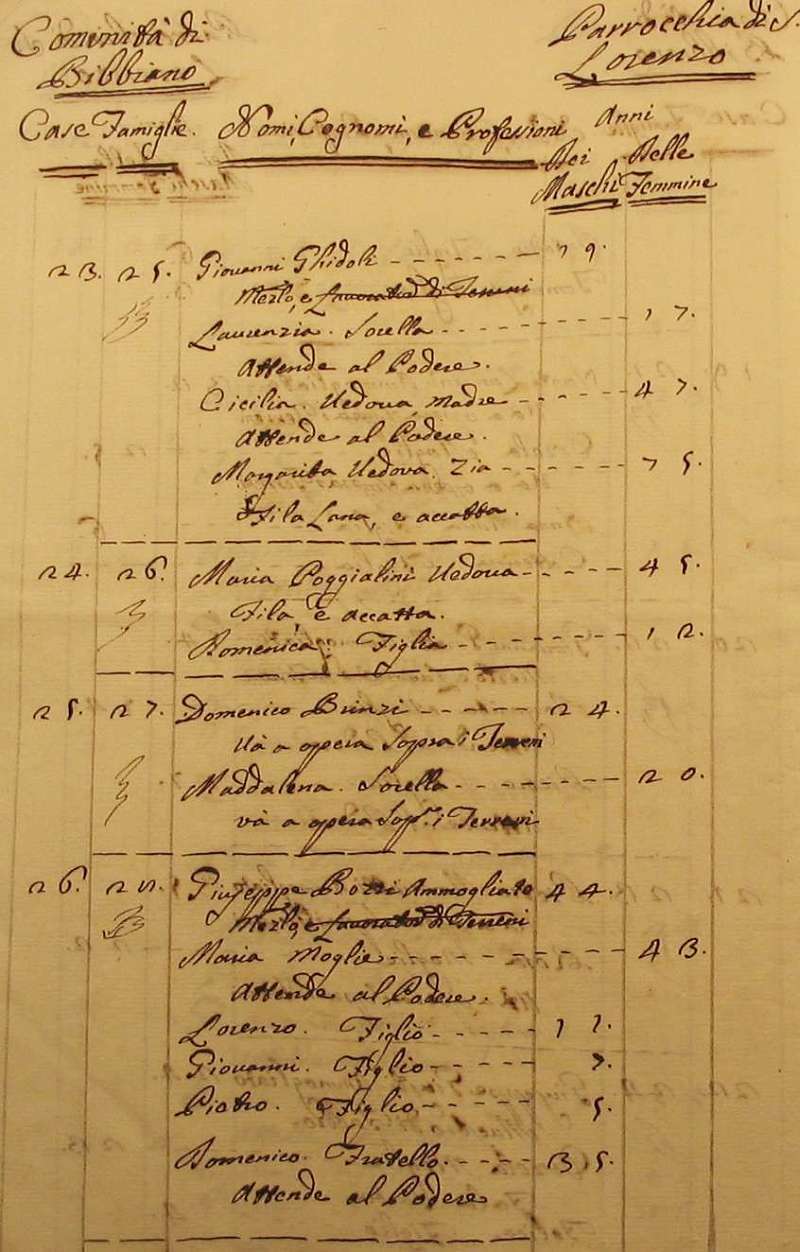 Comunità di
Bibbiano
Parrocchia di S.
Lorenzo
Case Famiglie. Nomi, Cognomi, e Professioni Anni
Dei Delle
Maschi Femmine
23. 25. Giovanni Ghidoli 19.
Merlo, e Lavorator di Terreni
Laurenzia. Sorella 17.
Attende al Podere.
Cicilia. Vedova, Madre 47.
Attende al Podere.
Margarita, Vedova. Zia 75.
Fila Lana, e accatta.
24. 26. Maria Poggialini Vedova 45.
Fila, e accatta.
Domenica. Figlia 12.
25. 27. Domenico Brinzi 24.
Và a opera Sopra i Terreni
Maddalena. Sorella 20.
và a opera Sop.ª i Terreni
26. Giuseppe Bozzi Ammogliato 44.
Merlo, e Lavorator di Terreni
Maria Moglie 43.
Attende al Podere.
Lorenzo. Figlio 11.
Giovanni. Figlio 7.
Pietro. Figlio 5.
Domenico. Fratello 35.
Attende al Podere